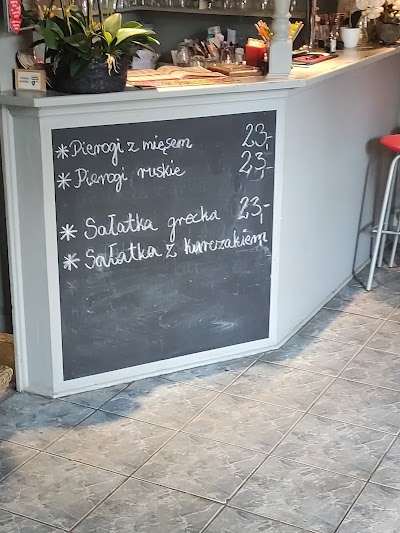 * Pierogi z mięsem 23,-
* Pierogi ruskie 23,-
* Sałatka grecka 23,-
* Sałatka z kurczakiem